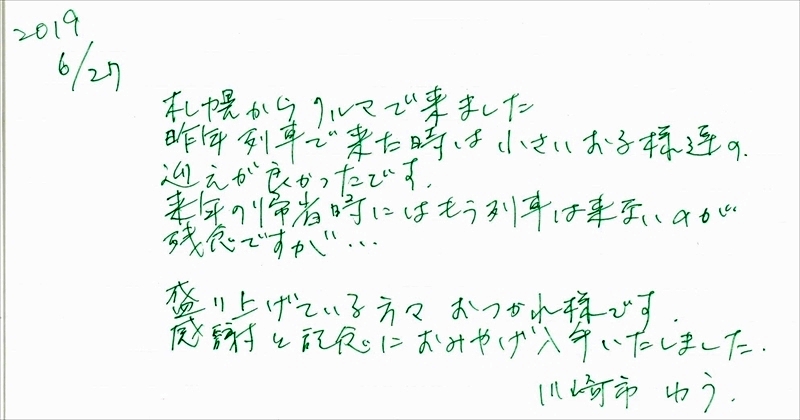 2019
6/27
札幌からクルマで来ました
昨年列車で来た時は小さいお子様達の
迎えが良かったです.
来年の帰省時にはもう列車は来ないのが
残念ですが...
盛り上げている方々 おつかれ様です.
感謝と記念におみやげ入手いたしました.
川崎市 ゆう.